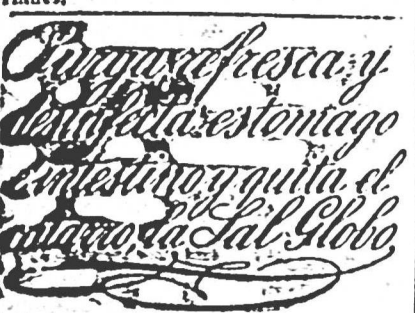 Purga, refresca y
desinfecta estomago
e intestino y quita el
catarro, la Sal Globo